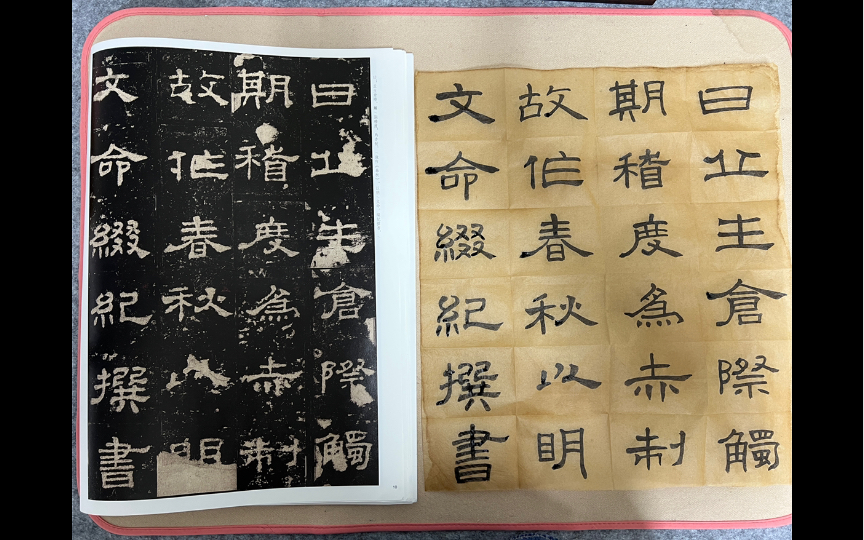 曰丘生倉際觸
期稽度爲赤制
故作春秋以明
文命綴紀撰書
曰丘生倉際觸
期稽度爲赤制
故作春秋以明
文命綴紀撰書